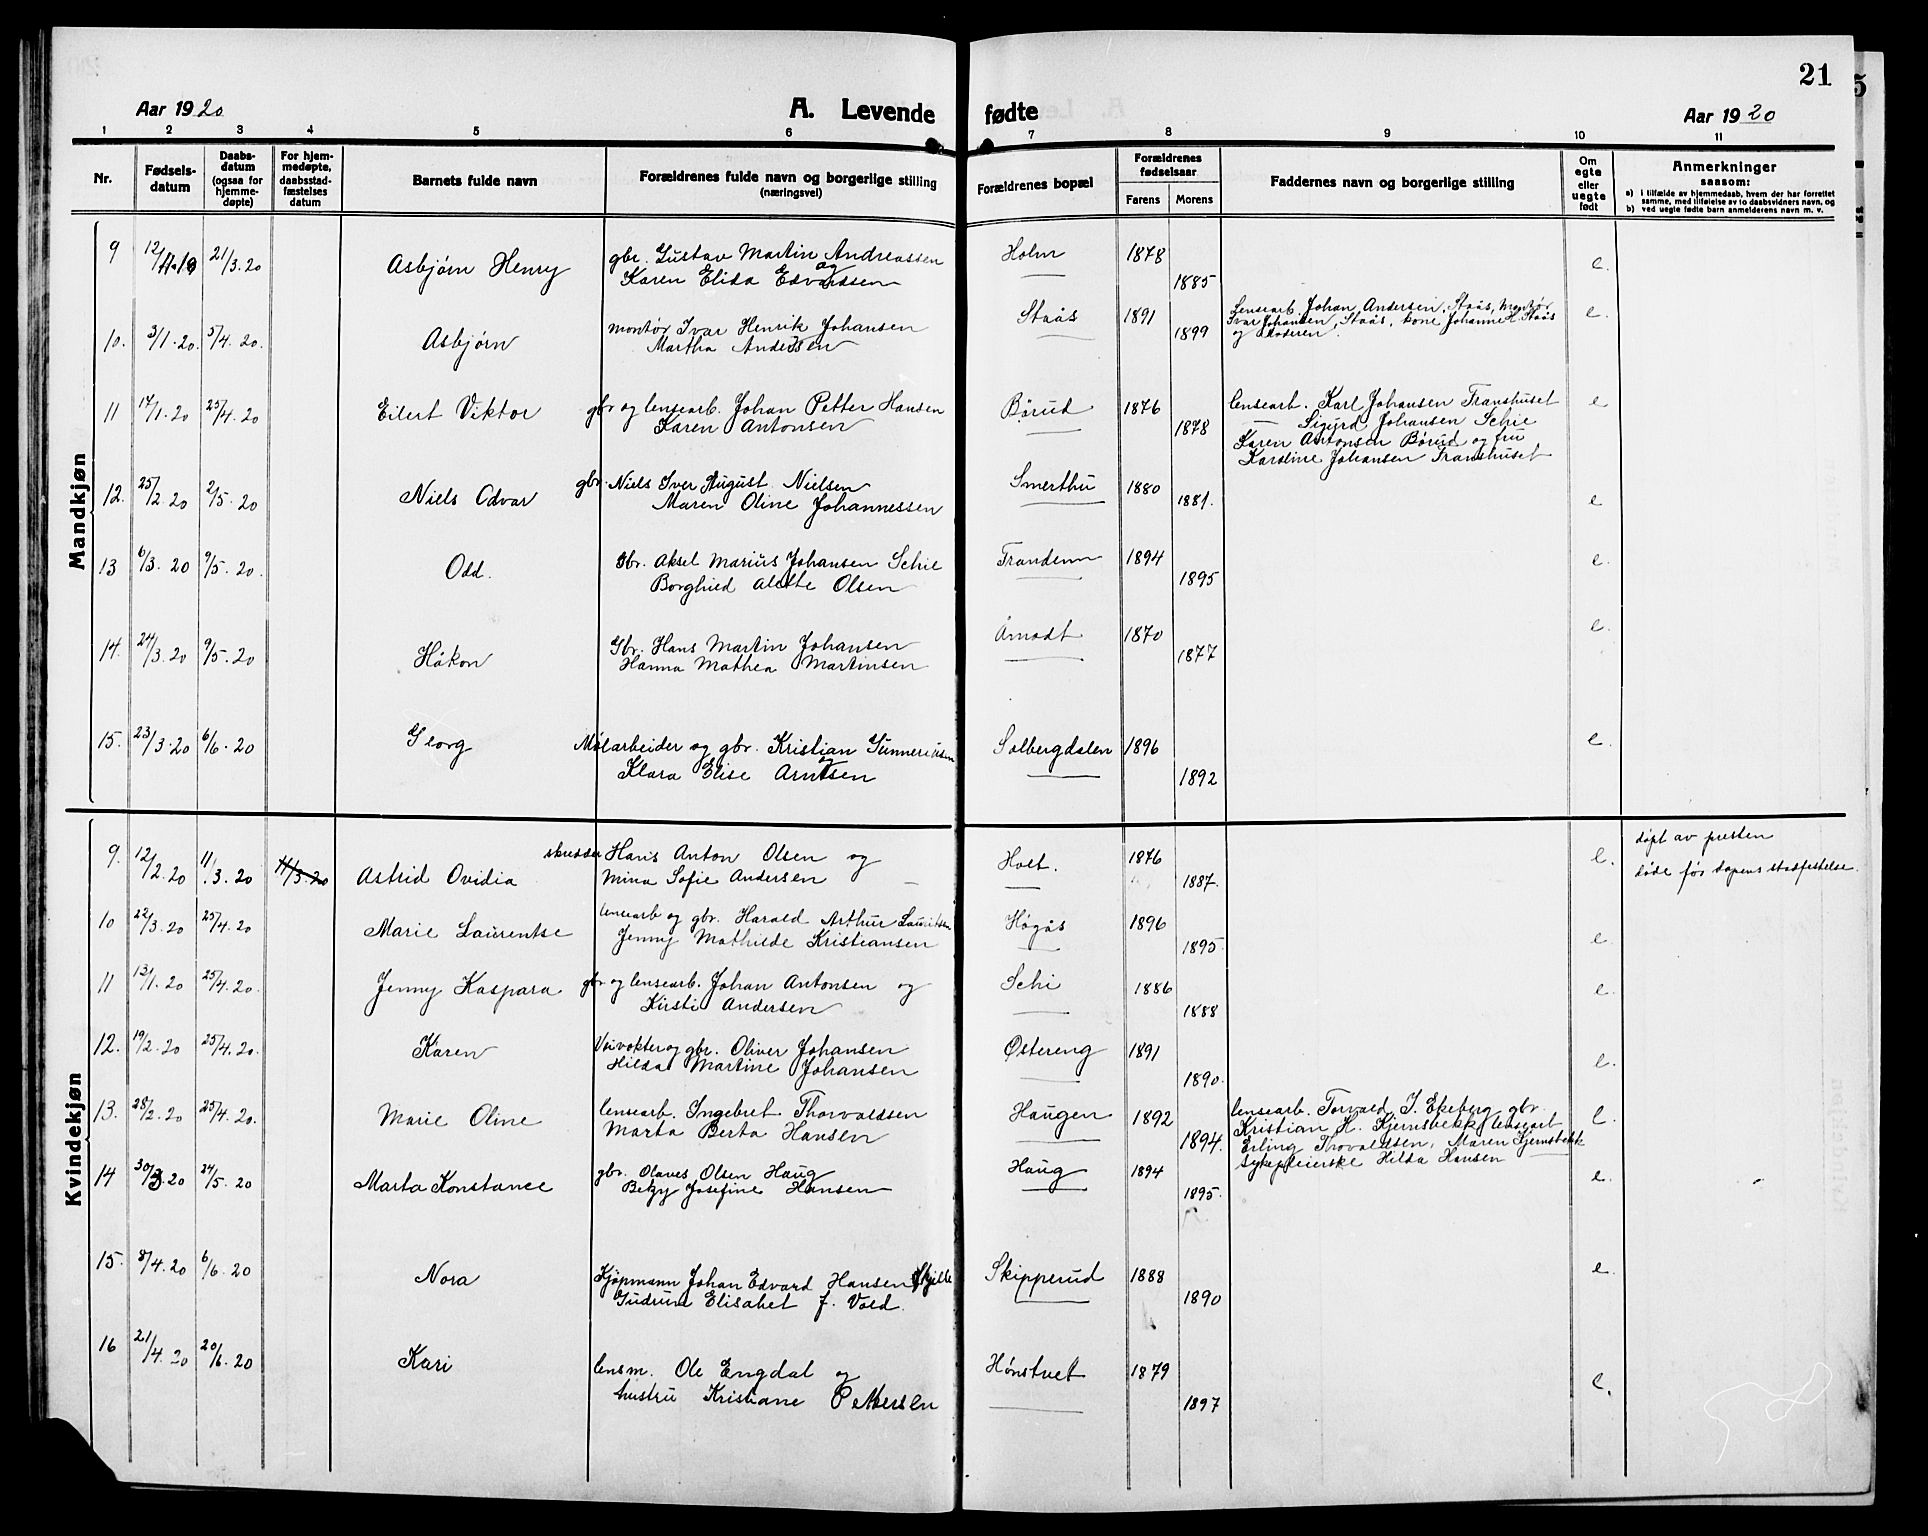 21
Aar 1920 A. Levende fødte Aar 1920
1 2 3 4 5 6 7 8 9 10 11
Nr. Fødsels-datum Daabs-datum (ogsaa for hjemme-døpte) For hjem-medøpte, daabsstad-fæstelses datum Barnets fulde navn Forældrenes fulde navn og borgerlige stilling (næringsvei) Forældrenes bopæl Forældrenes fødselsaar Farens Morens Faddernes navn og borgerlige stilling Om egte eller uegte født Anmerkninger saasom:
a) i tilfælde av hjemmedaab, hvem der har forrettet samme, med tilføielse av to daabsvidners navn, og
b) ved uegte fødte barn anmelderens navn m. v.
Mandkjøn
9 12/11.19 21/3.20 Asbjørn Henry gbr. Gustav Martin Andreassen og Holm 1878 e.
Karen Elida Edvardsen 1885
10. 3/1.20. 5/4.20. Asbjørn montør Ivar Henrik Johansen Staås 1891 Lensearb. Johan Andersen, Staås, Montør e.
Martha Andersen 1899 Ivar Johansen, Staås, kone Johanne H. Staås
og Moderen.
11 17/1.20 25/4.20 Eilert Viktor gbr og lensearb. Johan Petter Hansen Børud 1876 lensearb. Karl Johansen Tranhuset e
Karen Antonsen 1878 — Sigurd Johansen Schie
Karen Antonsen Børud og fru
Karoline Johansen Tranhuset
12. 25/2.20 2/5.20 Niels Odvar gbr. Niels Iver August Nielsen Smerthu 1880 e
Maren Oline Johannessen 1881.
13 6/3.20 9/5.20. Odd. Gbr. Aksel Marius Johansen Schie 1894 e.
Olsen 1895
14. 24/3.20 9/5.20 Håkon Gbr. Hans Martin Johansen Åmodt 1870 e.
Hanna Mathea Martinsen 1877
15. 23/3.20 6/6.20 Georg Mølarbeider og gbr. Kristian Gunneriusen og Solbergdalen 1896 e.
Klara Elise Arntsen 1892
Kvindekjøn
9. 12/2.20 11/3.20 11/3.20 Astrid Ovidia skrædder Hans Anton Olsen og Holt. 1876 e. døpt av presten
Mina Sofie Andersen 1887. døde før dapens stadfestelse.
10 22/3.20 25/4.20 Marie Laurentse lensearb og gbr. Harald Arthur Lauritsen Høgås 1896 e.
Jenny Mathilde Kristiansen 1895.
11 13/1.20 25/4.20. Jenny Kaspara gbr og lensearb. Johan Antonsen og Schi 1886 e.
Kirsti Andersen 1888
12. 19/2.20 25/4.20. Karen Veivokter og gbr. Oliver Johansen Østereng 1891 e.
Hilda Martine Johansen 1890.
13. 28/2.20 25/4.20. Marie Oline lensearb. Ingebret Thorvaldsen Haugen 1892 lensearb. Torvald J. Ekeberg, gbr. e.
Marta Berta Hansen 1894. Kristian H. Kjernsbekk, lensearb
Erling Thorvaldsen, Maren Kjernsbekk
sykepleierske Hilda Hansen
14 30/3.20 24/5.20 Marta Konstance gbr. Olaves Olsen Haug Haug 1894 e.
Betzy Josefine Hansen 1895.
15. 8/4.20 6/6.20 Nora Kjøpmann Johan Edvard Hansen Skipperud 1888 e.
Gudrun Elisabet f. Vold. 1890
16 21/4.20 20/6.20 Kari lensm. Ole Engdal og Hønstvet 1879 e.
hustru Kristiane Pettersen 1897